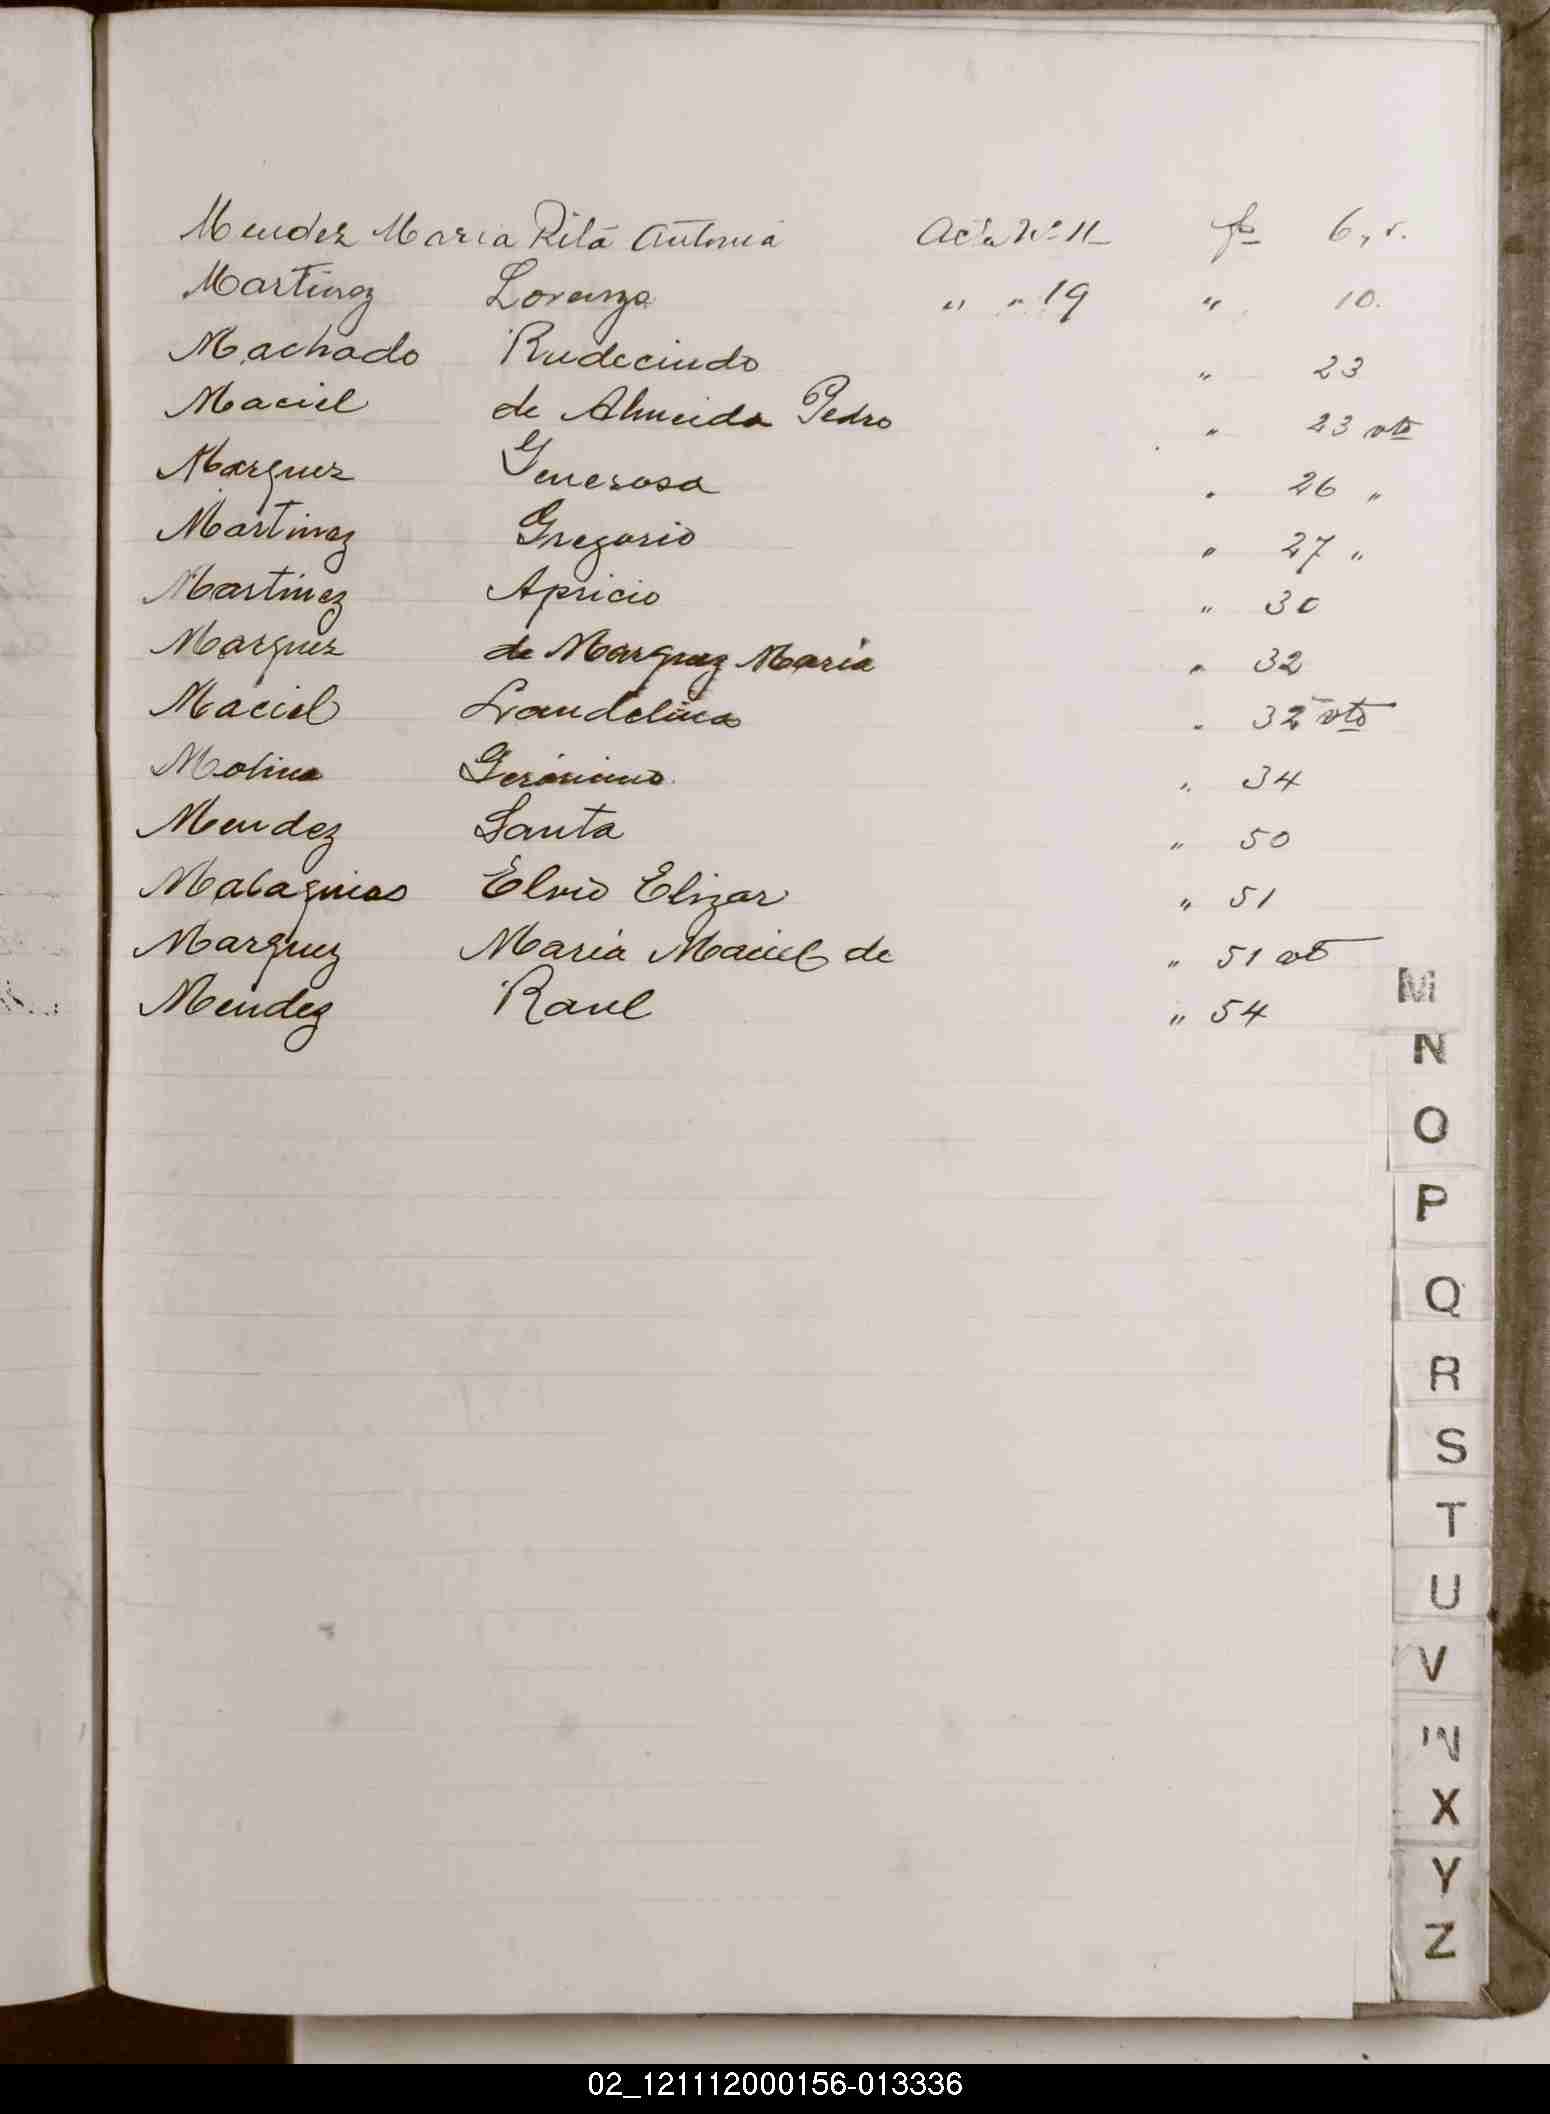 Mendez Maria Rita Antonia Acta Nº 11 fo 6, v.
Martinez Lorenzo " " 19 " 10.
Machado Rudecindo " 23
Maciel de Almeida Pedro " 23 vto
Marquez Generosa " 26 "
Martinez Gregorio " 27 "
Martinez Apricio " 30
Marquez de Marquez Maria " 32
Maciel Landelino " 32 vto
Molina Gerónimo " 34
Mendez Santa " 50
Malaquias Elvio Elizar " 51
Marquez Maria Maciel de " 51 vto
Mendez Raul " 54
M
N
O
P
Q
R
S
T
U
V
W
X
Y
Z
02_121112000156-013336